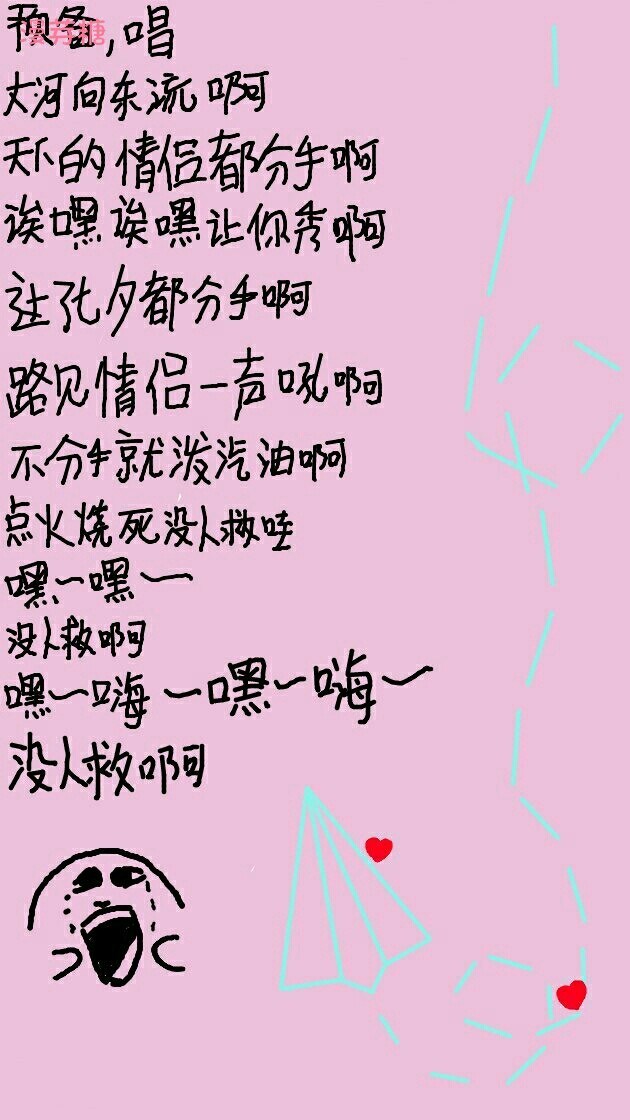 预备,唱
大河向东流啊
天下的情侣都分手啊
诶嘿诶嘿让你秀啊
让孔夕都分手啊
路见情侣一声吼啊
不分手就泼汽油啊
点火烧死没人救哇
嘿～嘿～
没人救啊
嘿～嗨～嘿～嗨～
没人救啊